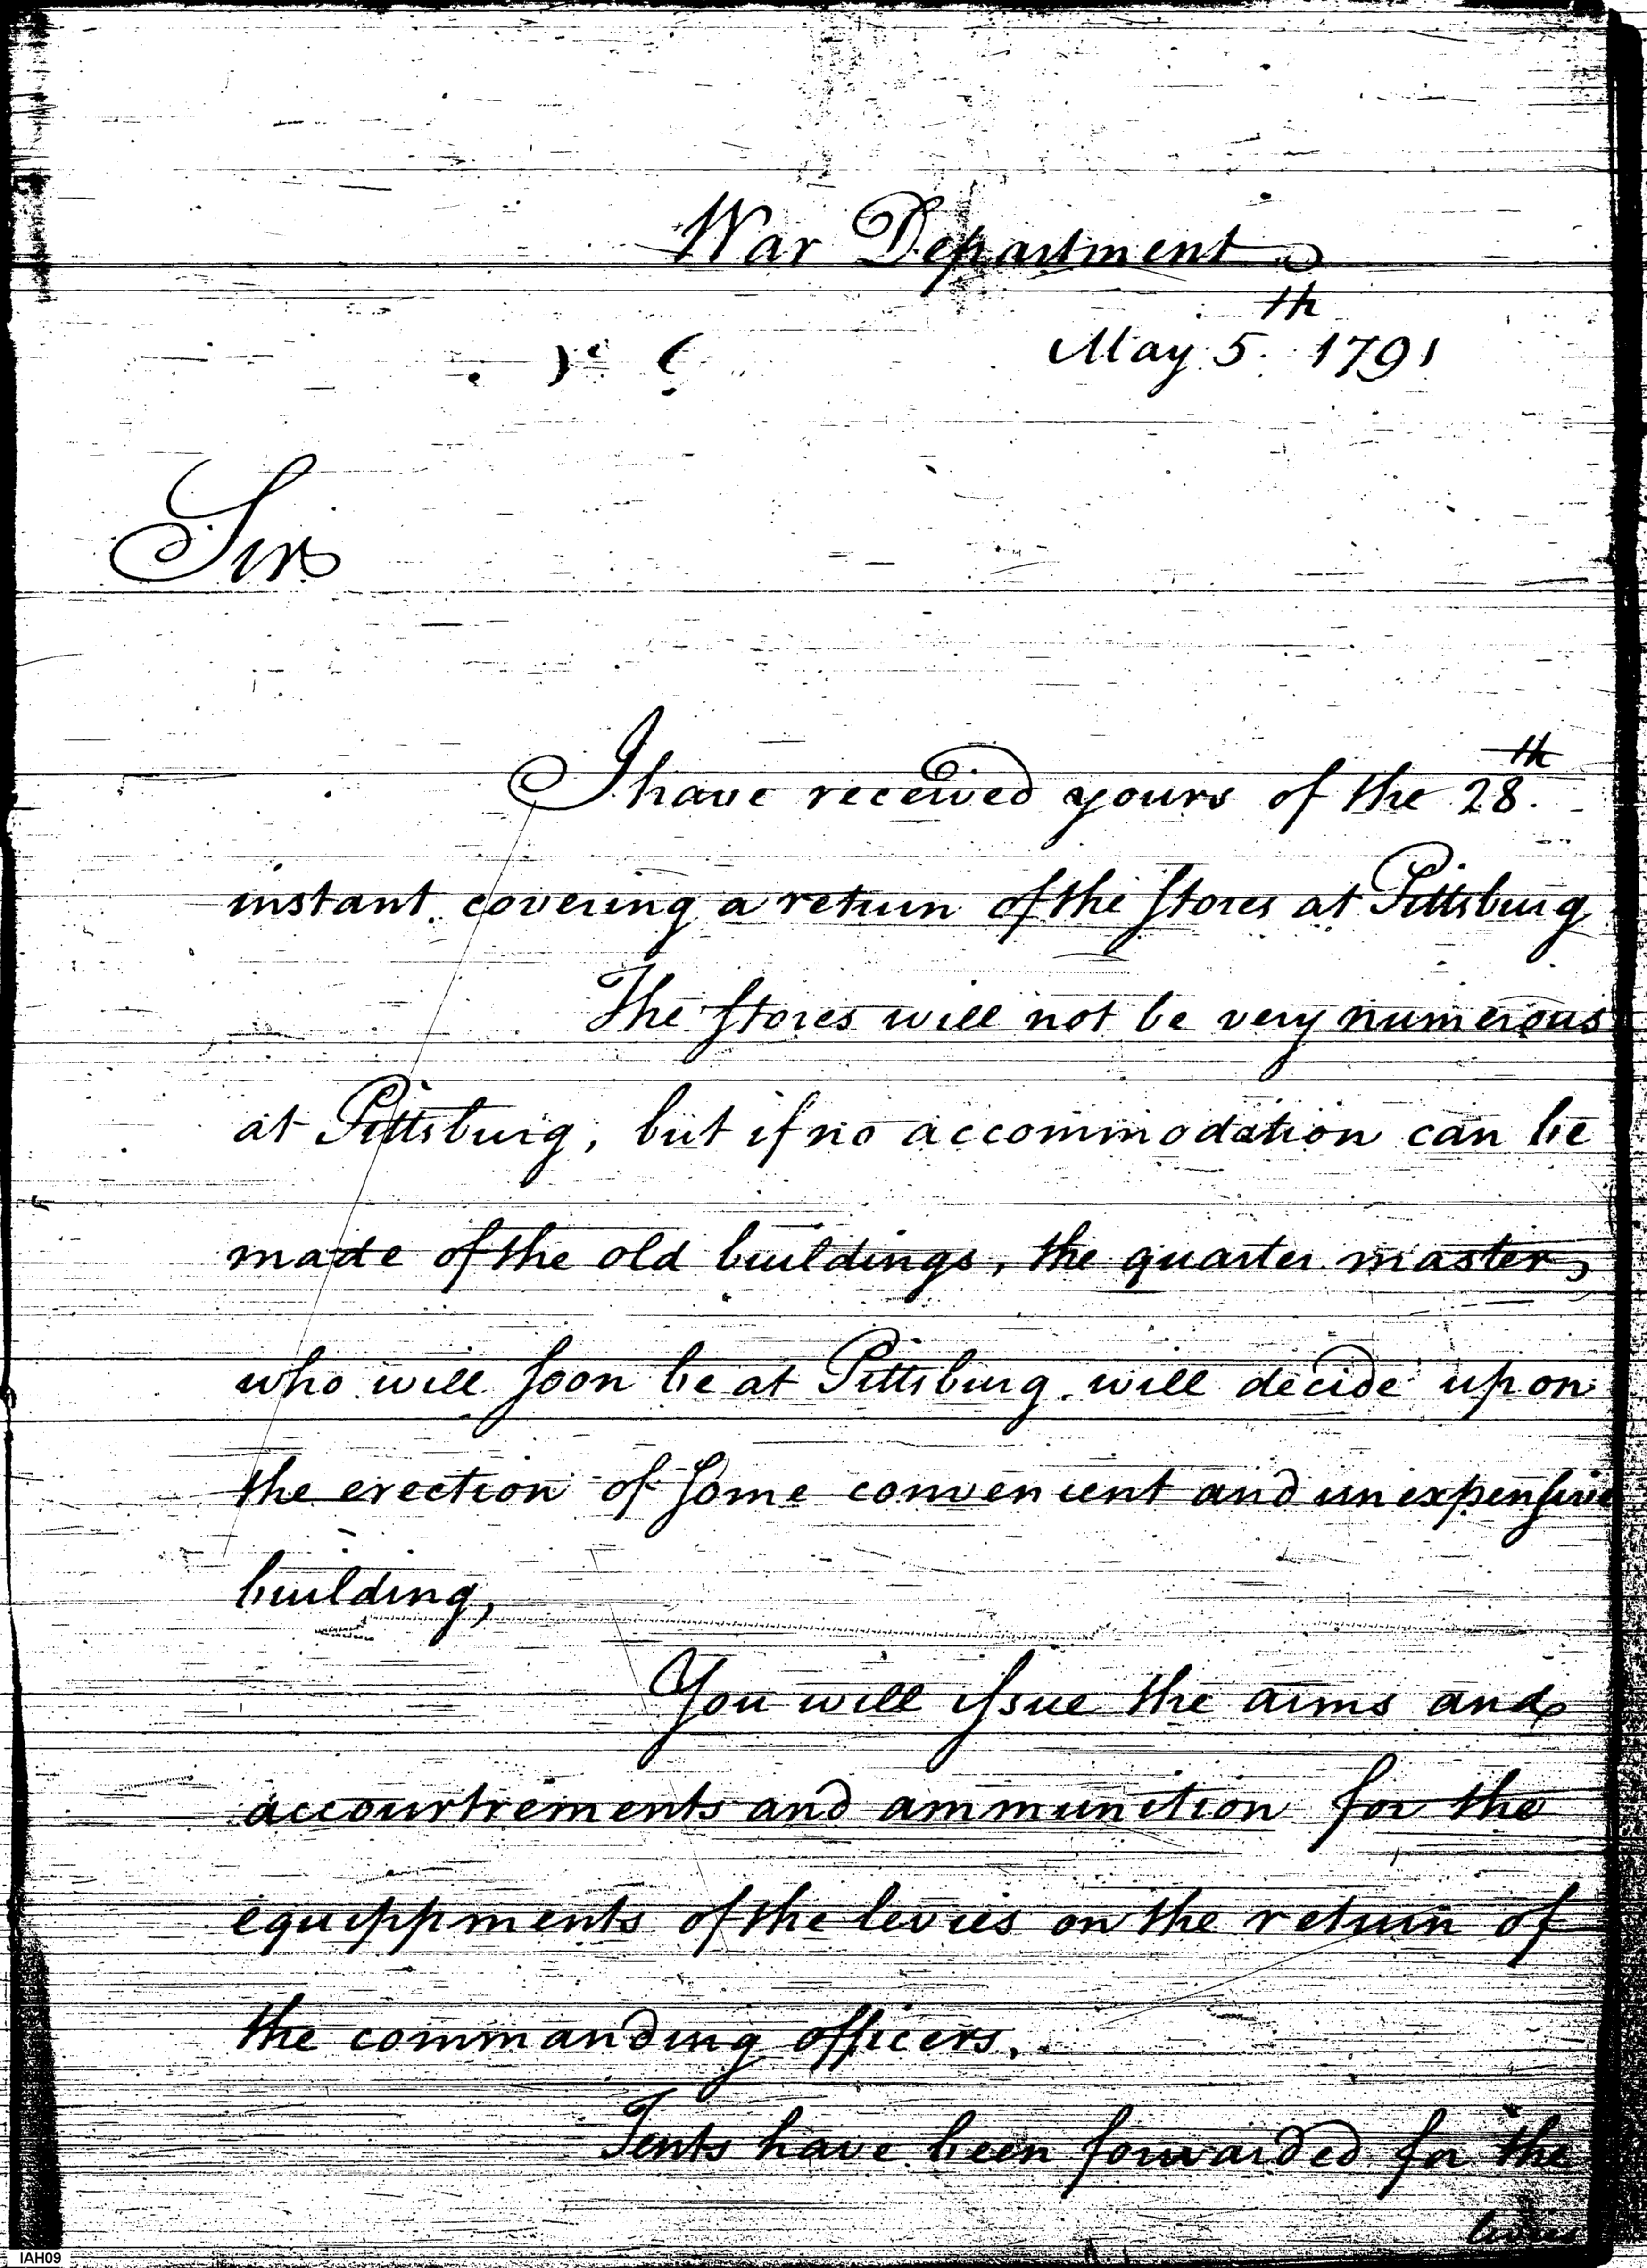 War Department
May 5th. 1791
Sir
I have received yours of the 28th.
instant covering a return of the stores at Pittsburg
The stores will not be very numerous
at Pittsburg, but if no accommodation can be
made of the old buildings, the quarter master,
who will soon be at Pittsburg. will decide upon
the erection of some convenient and unexpensive
building,
You will issue the arms and
accourtrements and ammunition for the
equippments of the levies on the return of
the commanding officers.
Tents have been forwarded for the
levies
IAH09